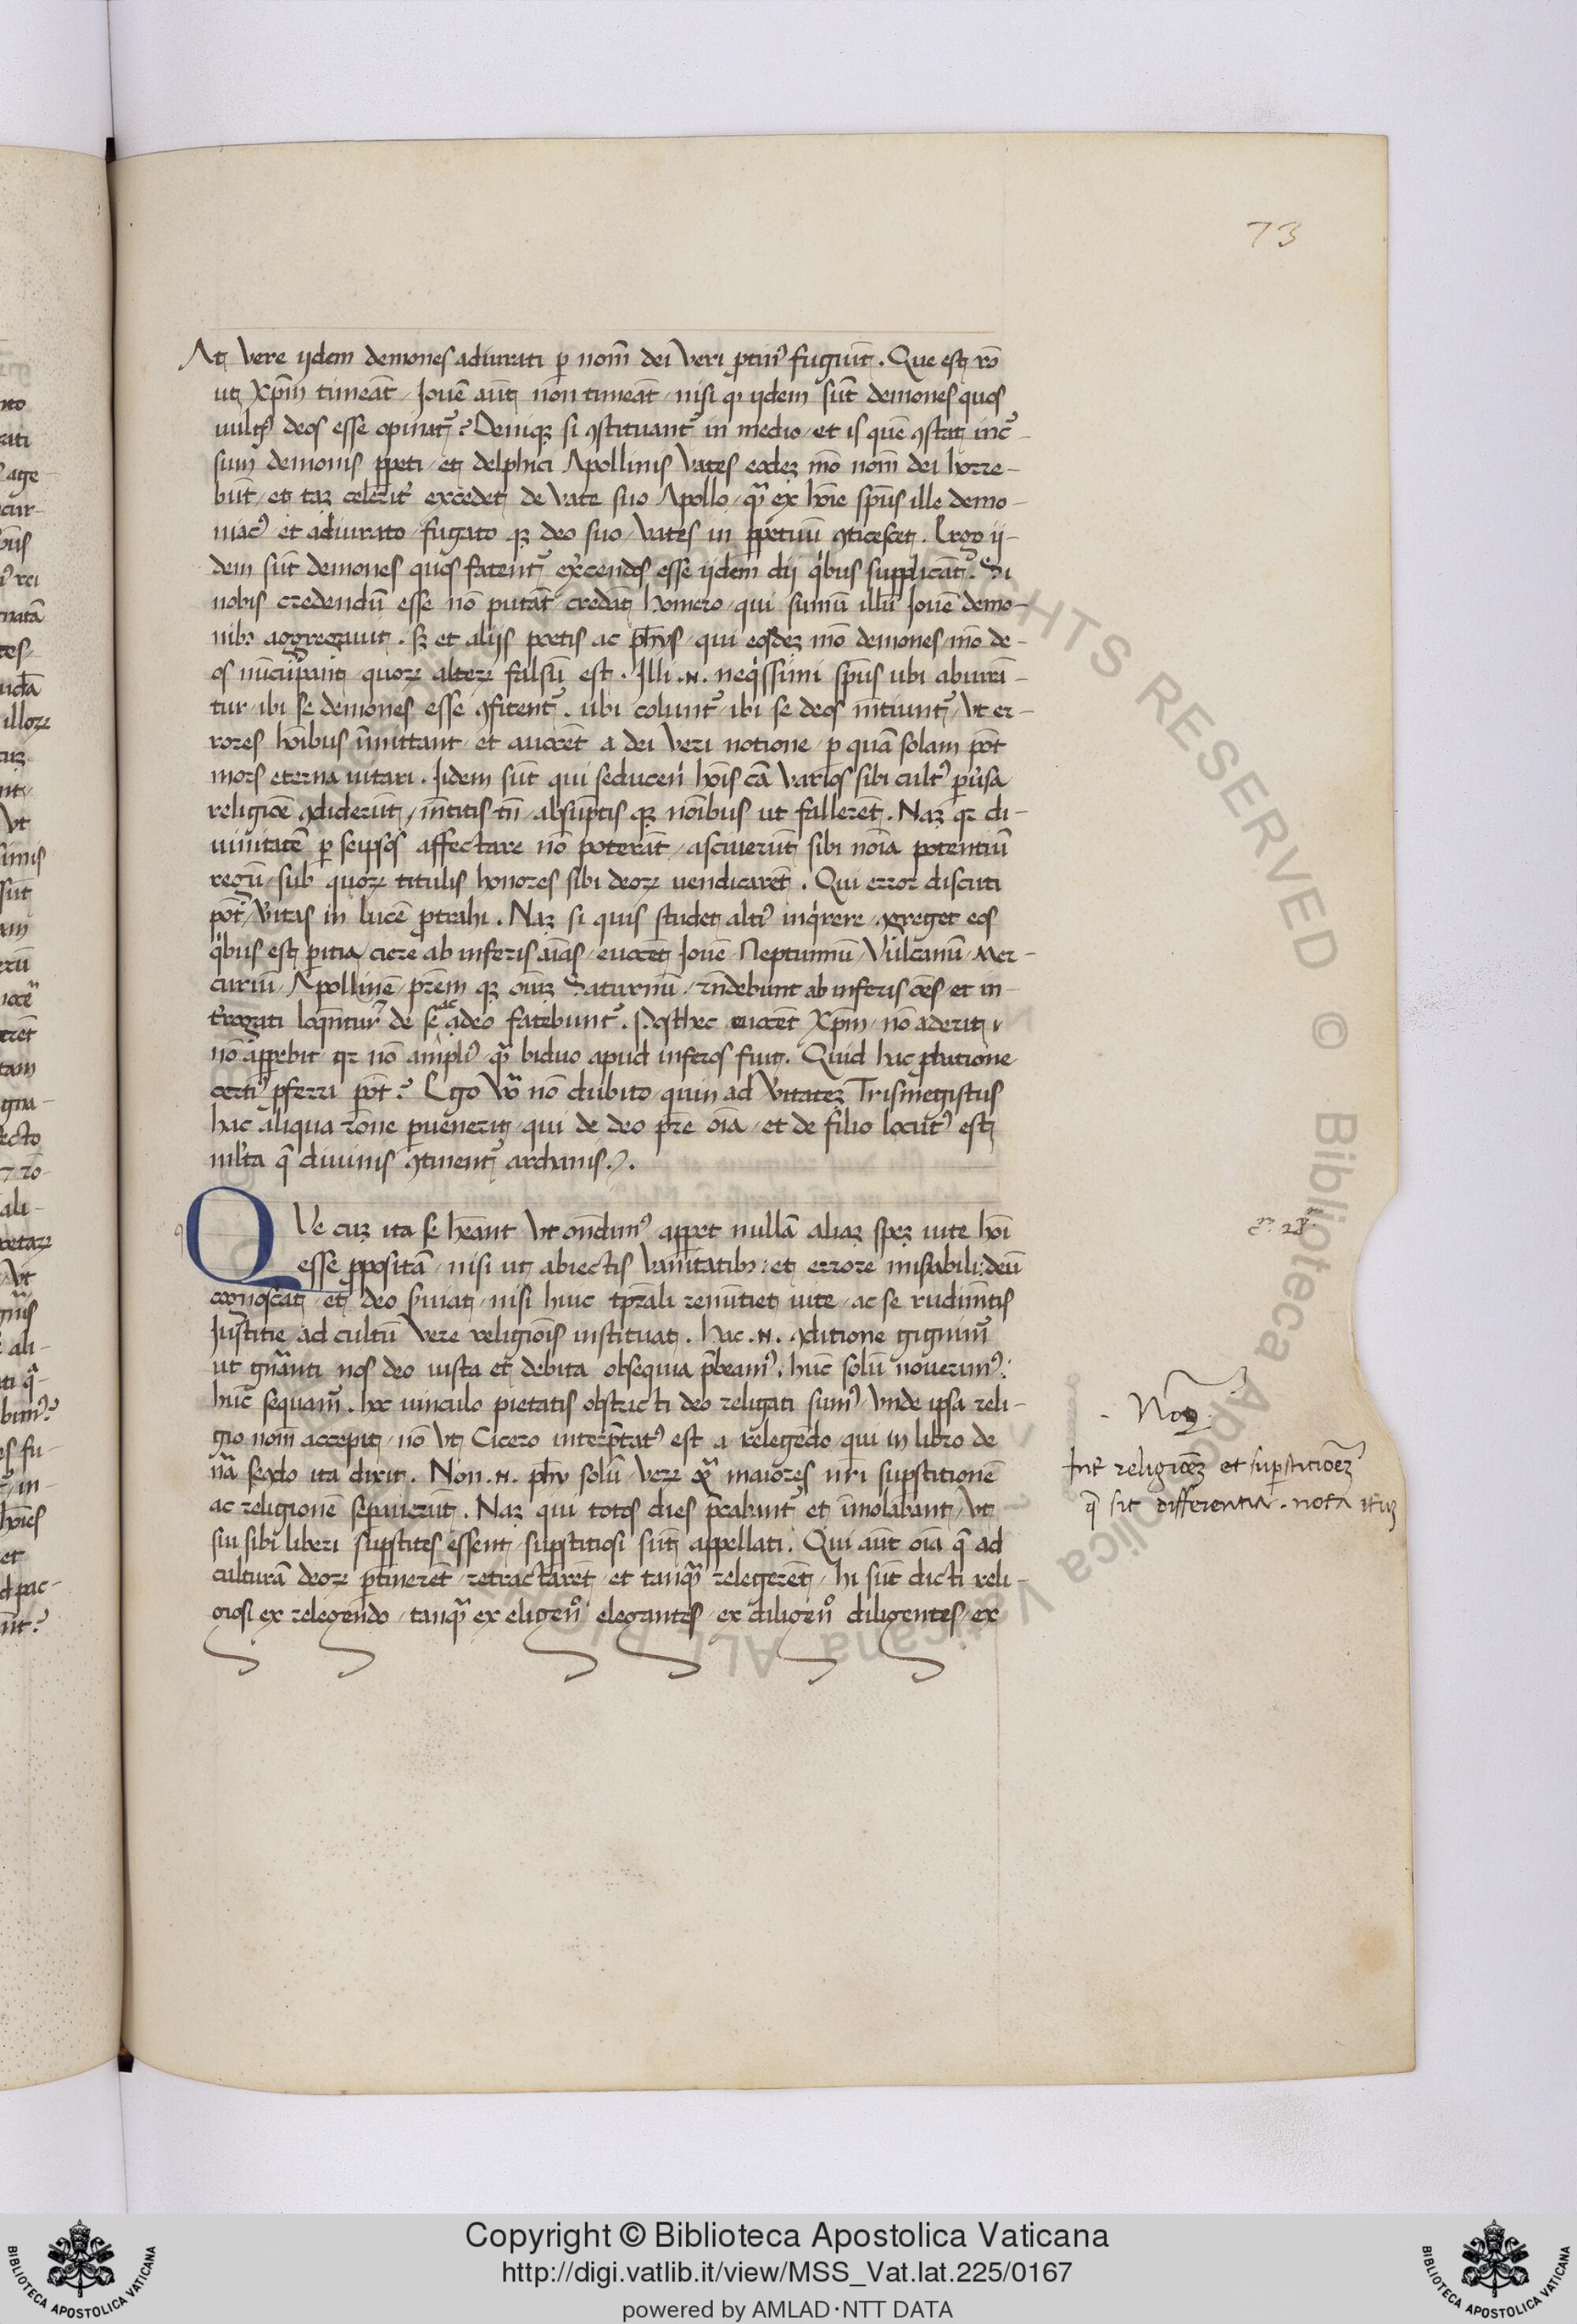 73
At vere ijdem demones adiurati ꝑ nom̄ dei veri ꝓtinꝰ fugiūt. Que est rō
ut Xp̄m timeāt / Iouē aūt non timeāt / nisi ꝙ ijdem sūt demones quos
uulgꝰ deos esse opinat᷑? Deniqꝫ si ꝯstituant᷑ in medio / et is quē ꝯstat inc᷑-
sum demonis ꝑpeti / et delphici Apollinis vates eodeꝫ mō nom̄ dei horre-
būt / et taꝫ celerit᷑ excedet de vate suo Apollo / qͣꝫ ex hoīe sp̄us ille demo-
niacꝰ et adiurato fugato qꝫ deo suo / vates in ꝑpetuū ꝯticescet. Ergo ij-
dem sūt demones quos fatent᷑ exe᷑candos esse ijdem dij qͥbus supplicāt᷑. Si
nobis credendū esse nō putāt credāt homero / qui sumū illū Iouē demo-
nibꝫ aggregauit. Sꝫ et alijs poetis ac ph̄ijs / qui eosdeꝫ mō demones / mō de-
os nūcupant / quoꝝ alteꝝ falsū est. Illi .n. neqͥssimi sp̄us ubi adiurā-
tur / ibi se demones esse ꝯfitent᷑. ubi colunt᷑ / ibi se deos mētiunt᷑ / ut er-
rores hoībus īmittant / et auocēt a dei veri notione / ꝑ quā solam pōt
mors eterna uitari. Iidem sūt qui seducen̄ hoīs cā varios sibi cultꝰ ꝑ diu᷑sa
religiōe ꝯdiderūt / mētitis tn̄ / absūptis qꝫ noībus ut fallerēt. Naꝫ qꝛ di-
uinitatē ꝑ seipsos affectare nō poterāt / asciuerūt sibi noīa potentiū
regū / sub quoꝝ titulis honores sibi deoꝝ uendicarēt. Qui error discuti
pōt / v᷑itas in lucē ꝓtrahi. Naꝫ si quis studet altiꝰ inqͥrere / ꝯgreget eos
qͥbus est ꝑitia / ciere ab inferis aīas / euocēt Iouē / Neptunnū / Vulcanū / Mer-
curiū / Apollinē / pr̄em qꝫ oīuꝫ Saturnū / rn̄debunt ab inferis oēs / et in-
t᷑rogati loquēntur de se ac deo fatebunt᷑. Post hec euocēt Xp̄m / nō aderit /
nō apparebit qꝛ nō ampliꝰ qͣꝫ biduo apud inferos fuit. Quid hac ꝓbatione
certiꝰ ꝓferri pōt? Ego v᷑o nō dubito quin ad v᷑itateꝫ Trismegistus
hac aliqua rōne ꝑuenerit / qui de deo pr̄e oīa / et de filio locutꝰ est
ml᷑ta q̄ diuinis ꝯtinent᷑ archanis.
QVe cuꝫ ita se hēant ut on̄dimꝰ apparet nullā aliaꝫ speꝫ uite hoī
esse ꝓpositā / nisi ut abiectis vanitatibꝫ: et errore mis᷑abili: deū
cognoscat / et deo s᷑uiat / nisi huic tp̄rali renūtiet uite / ac se rudimētis
Iustitie ad cultū vere religiōis instituat. hac .n. ꝯditione gignim᷑
ut gn̄anti nos deo iusta et debita obsequia p̄beamꝰ. hūc solū nouerimꝰ:
hūc sequam᷑. hoc uinculo pietatis obstricti deo religati sumꝰ / vnde ipsa reli-
gio nom̄ accepit / nō ut Cicero interp̄tatꝰ est a relegēdo / qui in libro de
nā secūdo ita dixit. Non .n. ph̄i solū / veꝝ etiā maiores nr̄i suꝑstitionē
ac religionē seꝑauerūt. Naꝫ qui totos dies p̄cabant᷑ et īmolabant / ut
sui sibi liberi suꝑstites essent / suꝑstitiosi sūt appellati. Qui aūt oīa q̄ ad
culturā deoꝝ ꝑtinerēt / retractarēt / et tanqͣꝫ relegerēt / hi sūt dicti reli-
giosi ex relegendo / tanqͣꝫ ex eligen̄o elegantes / ex diligen̄o diligentes / ex
Nota
Int᷑ religiōeꝫ et suꝑstitiōeꝫ
q̄ sit differentia . nota
Copyright © Biblioteca Apostolica Vaticana
http://digi.vatlib.it/view/MSS_Vat.lat.225/0167
powered by AMLAD·NTT DATA
BIBLIOTECA APOSTOLICA VATICANA
BIBLIOTECA APOSTOLICA VATICANA